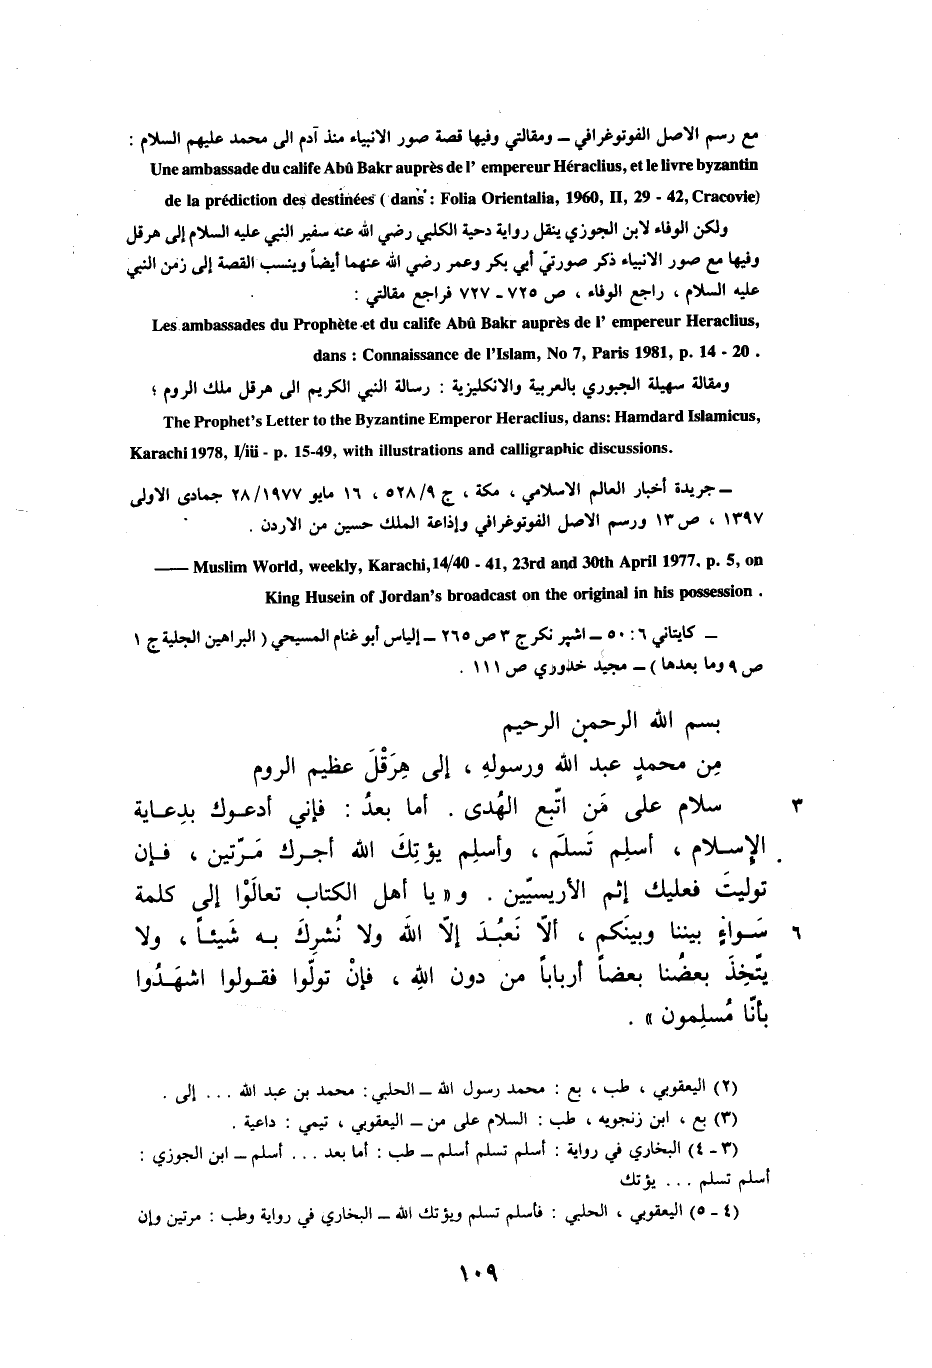 مع رسم الاصل الفوتوغرافي – ومقالتي وفيها قصة صور الانبياء منذ آدم الى محمد عليهم السلام :
Une ambassade du calife Abû Bakr auprès de l' empereur Héraclius, et le livre byzantin
de la prédiction des destinées ( dans : Folia Orientalia, 1960, II, 29 - 42, Cracovie)
ولكن الوفاء لابن الجوزي ينقل رواية دحية الكلبي رضي الله عنه سفير النبي عليه السلام إلى هرقل
وفيها مع صور الانبياء ذكر صورتيْ أبي بكر وعمر رضي الله عنهما أيضاً وينسب القصة إلى زمن النبي
عليه السلام ، راجع الوفاء ، ص ٧٢٥ – ٧٢٧ فراجع مقالتي :
Les ambassades du Prophète et du calife Abû Bakr auprès de l' empereur Heraclius,
dans : Connaissance de l'Islam, No 7, Paris 1981, p. 14 - 20 .
ومقالة سهيلة الجبوري بالعربية والانكليزية : رسالة النبي الكريم الى هرقل ملك الروم ؛
The Prophet's Letter to the Byzantine Emperor Heraclius, dans: Hamdard Islamicus,
Karachi 1978, I/iii - p. 15-49, with illustrations and calligraphic discussions.
– جريدة أخبار العالم الاسلامي ، مكة ، ج ٥٢٨/٩ ، ١٦ مايو ٢٨/١٩٧٧ جمادى الاولى
١٣٩٧ ، ص ١٣ ورسم الاصل الفوتوغرافي وإذاعة الملك حسين من الاردن .
—— Muslim World, weekly, Karachi, 14/40 - 41, 23rd and 30th April 1977. p. 5, on
King Husein of Jordan's broadcast on the original in his possession .
– كايتاني ٦ : ٥٠ – اشپر نكر ج ٣ ص ٢٦٥ – إلياس أبو غنام المسيحي ( البراهين الجلية ج ١
ص ٩ وما بعدها ) – مجيد خدوري ص ١١١ .
بسم الله الرحمن الرحيم
مِن محمدٍ عبد الله ورسولهِ ، إلى هِرَقْلَ عظيم الروم
٣ سلام على مَن اتّبع الهُدى . أما بعدُ : فإني أدعوك بدِعاية
الإسلام ، أسلِم تَسلَم ، وأسلِم يؤتِكَ الله أجرك مَرّتين ، فإن
توليتَ فعليك إثم الأريسيّين . و« يا أهل الكتاب تعالَوْا إلى كلمة
٦ سَواءٍ بيننا وبينَكم ، ألاّ نَعبُدَ إلاّ اللهَ ولا نُشرِكَ به شَيئاً ، ولا
يتّخِذَ بعضُنا بعضاً أرباباً من دون اللهِ ، فإنْ تولّوا فقولوا اشهَدُوا
بأنّا مُسلِمون » .
(٢) اليعقوبي ، طب ، بع : محمد رسول الله – الحلبي : محمد بن عبد الله ... إلى .
(٣) بع ، ابن زنجويه ، طب : السلام على من – اليعقوبي ، تيمي : داعية .
(٣ – ٤) البخاري في رواية : أسلم تسلم أسلم – طب : أما بعد ... أسلم – ابن الجوزي :
أسلم تسلم ... يؤتك
(٤ – ٥) اليعقوبي ، الحلبي : فأسلم تسلم ويؤتك الله – البخاري في رواية وطب : مرتين وإن
١٠٩